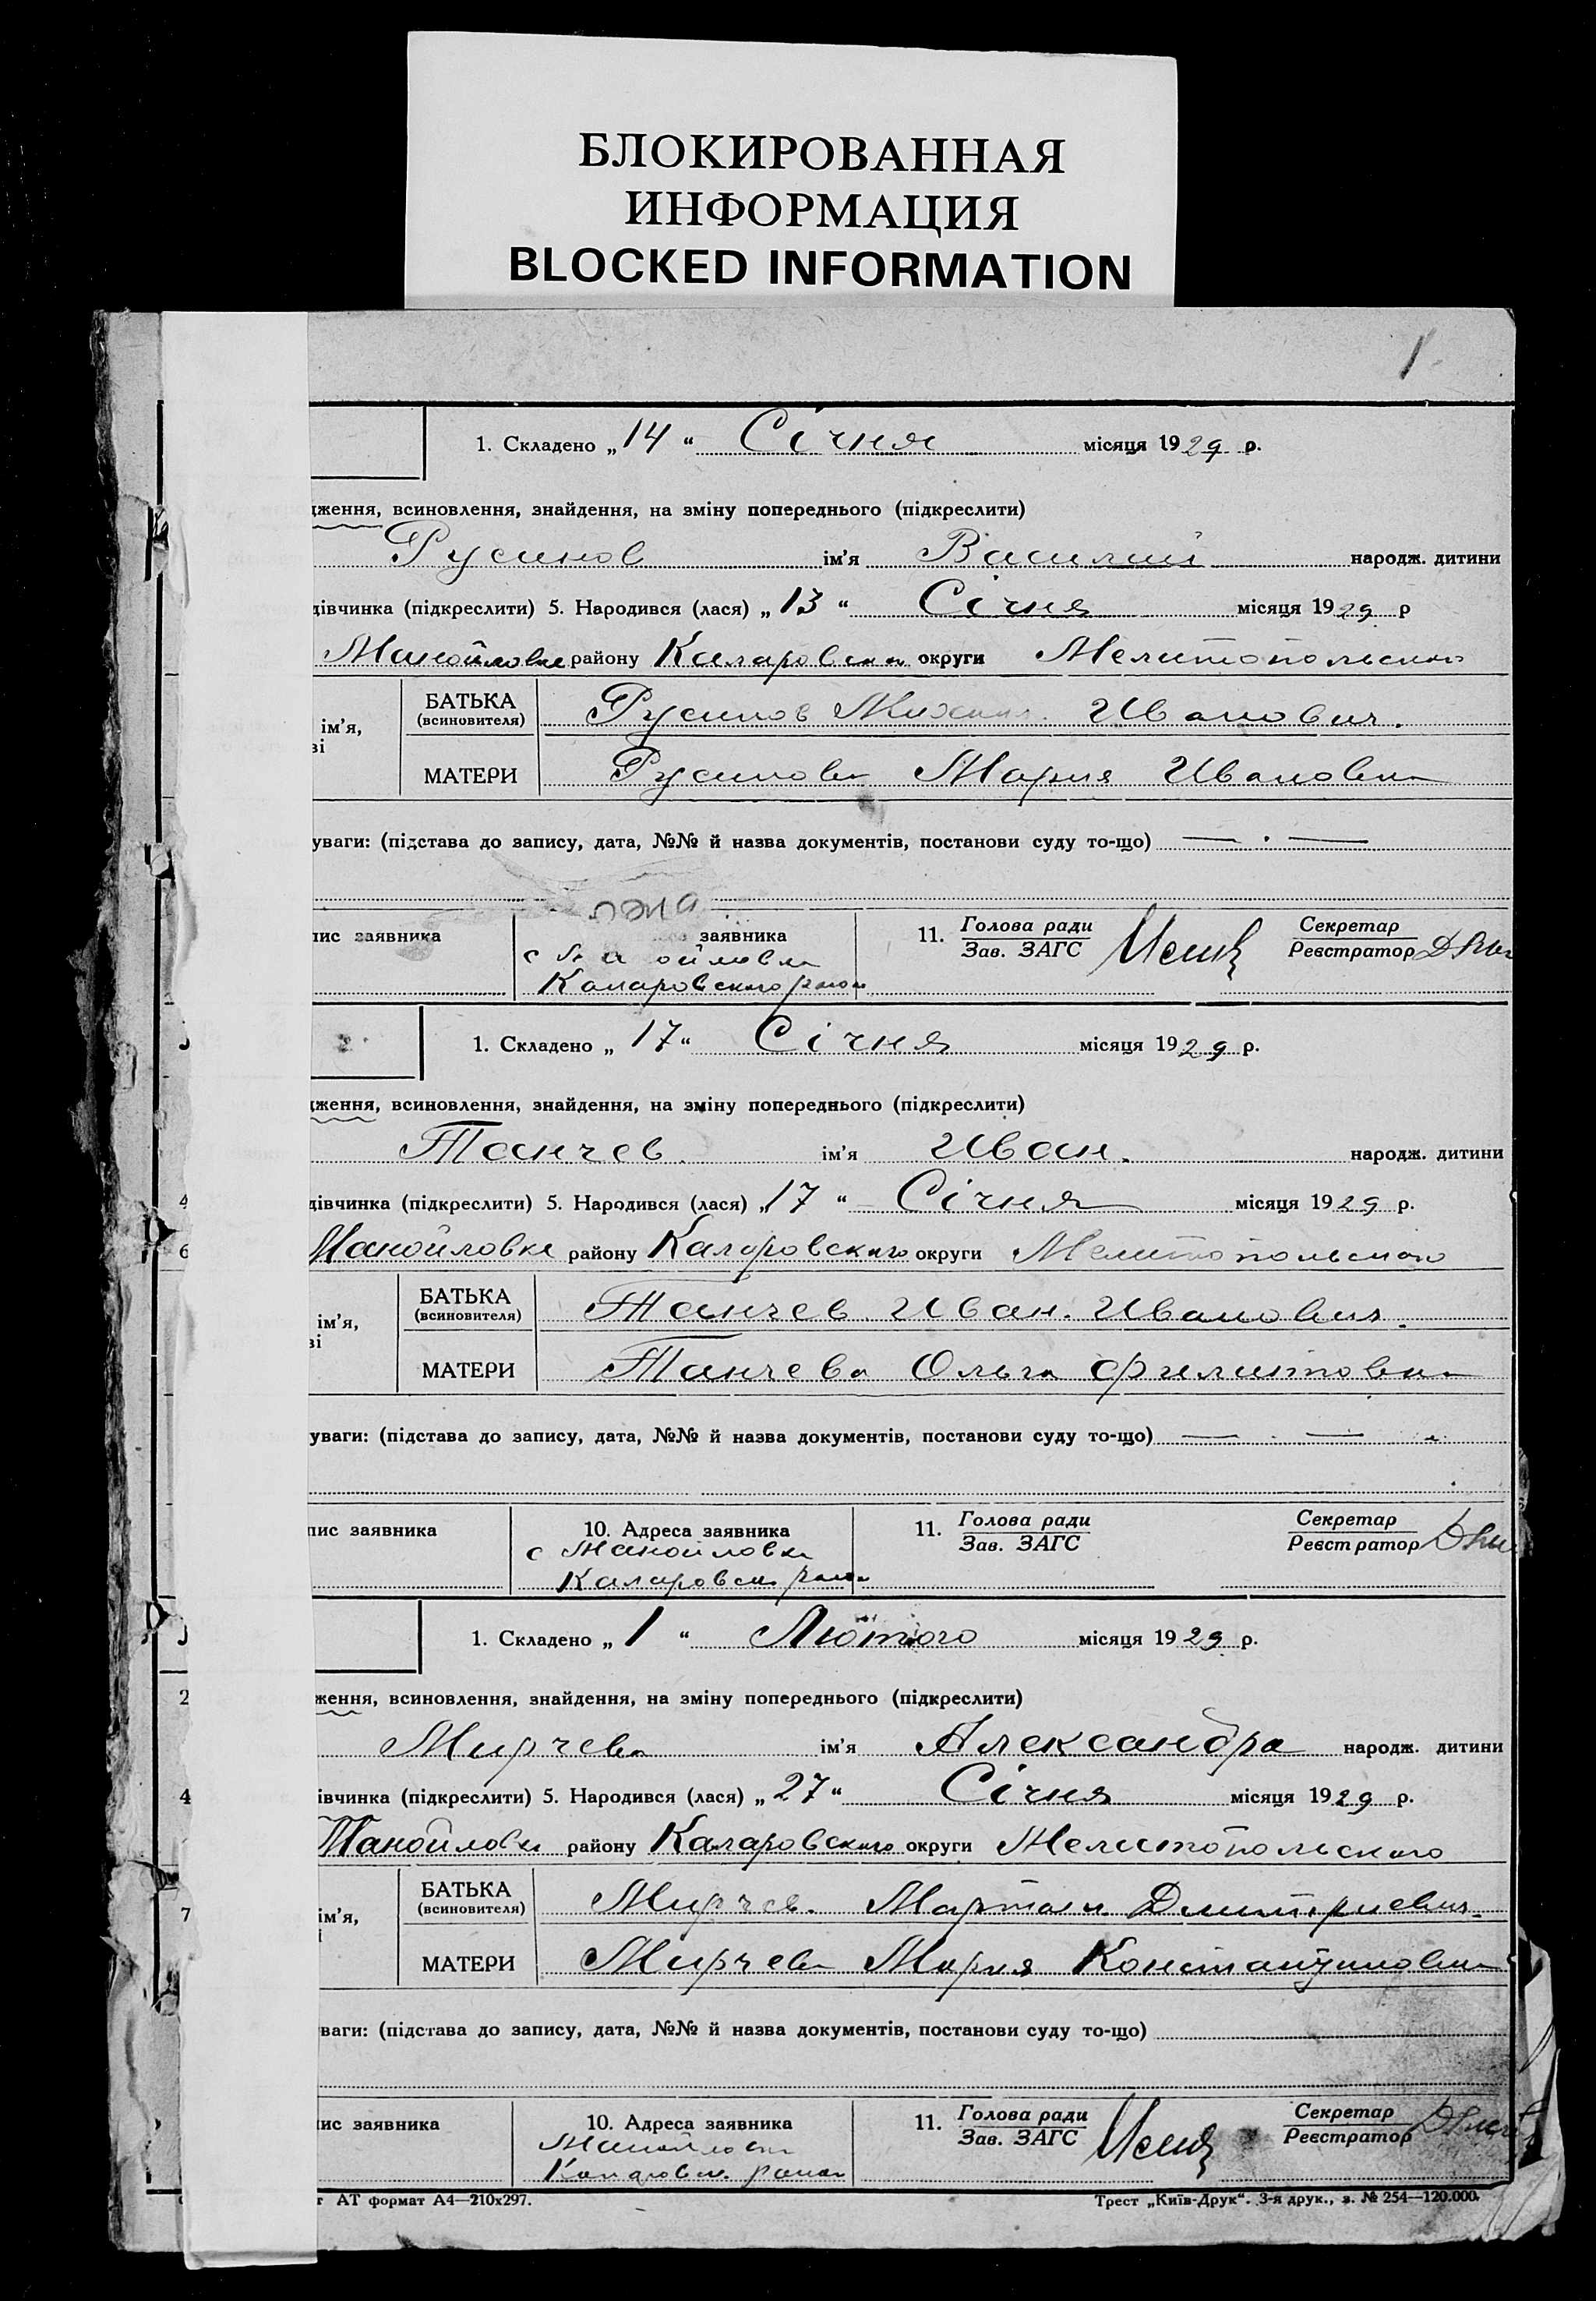 БЛОКИРОВАННАЯ
ИНФОРМАЦИЯ
BLOCKED INFORMATION
1
1. Складено „ 14 “ Січня місяця 1929 р.
дження, всиновлення, знайдення, на зміну попереднього (підкреслити)
Русинов ім’я Василий народж. дитини
дівчинка (підкреслити) 5. Народився (лася) „ 13 “ Січня місяця 1929 р
Манойловке району Каларовски округи Мелитопольского
БАТЬКА
(всиновителя)
Русинов Михаил Иванович.
ім’я,
ві
МАТЕРИ Русинова Мария Ивановна
уваги: (підстава до запису, дата, №№ й назва документів, постанови суду то-що) — . —
пис заявника
заявника
11. Голова ради
Зав. ЗАГС
Секретар
Реєстратор
Каларовского район
2.
1. Складено „ 17 “ Січня місяця 1929 р.
дження, всиновлення, знайдення, на зміну попереднього (підкреслити)
Танчев ім’я Иван. народж. дитини
4
дівчинка (підкреслити) 5. Народився (лася) „ 17 “ Січня місяця 1929 р.
6
Манойловке району Каларовского округи Мелитопольского
БАТЬКА
(всиновителя)
Танчев Иван. Иванович.
ім’я,
ві
МАТЕРИ Танчева Ольга Филиповна
уваги: (підстава до запису, дата, №№ й назва документів, постанови суду то-що) — . — .
пис заявника
10. Адреса заявника
11. Голова ради
Зав. ЗАГС
Секретар
Реєстратор
с Манойловка
Каларовск район
1. Складено „ 1 “ Лютого місяця 1929 р.
2
ження, всиновлення, знайдення, на зміну попереднього (підкреслити)
Мирчева ім’я Александра народж. дитини
4
івчинка (підкреслити) 5. Народився (лася) „ 27 “ Січня місяця 1929 р.
Манойловк району Каларовского округи Мелитопольского
БАТЬКА
(всиновителя)
Мирчев. Мартын Дмитриевич.
7
ім’я,
МАТЕРИ Мирчева Мария Константиновна
ваги: (підстава до запису, дата, №№ й назва документів, постанови суду то-що)
ис заявника
10. Адреса заявника
11. Голова ради
Зав. ЗАГС
Секретар
Реєстратор
Манойловка
Каларовск. район
т АТ формат А4—210х297.
Трест „Київ-Друк“. 3-я друк., з. № 254—120.000.